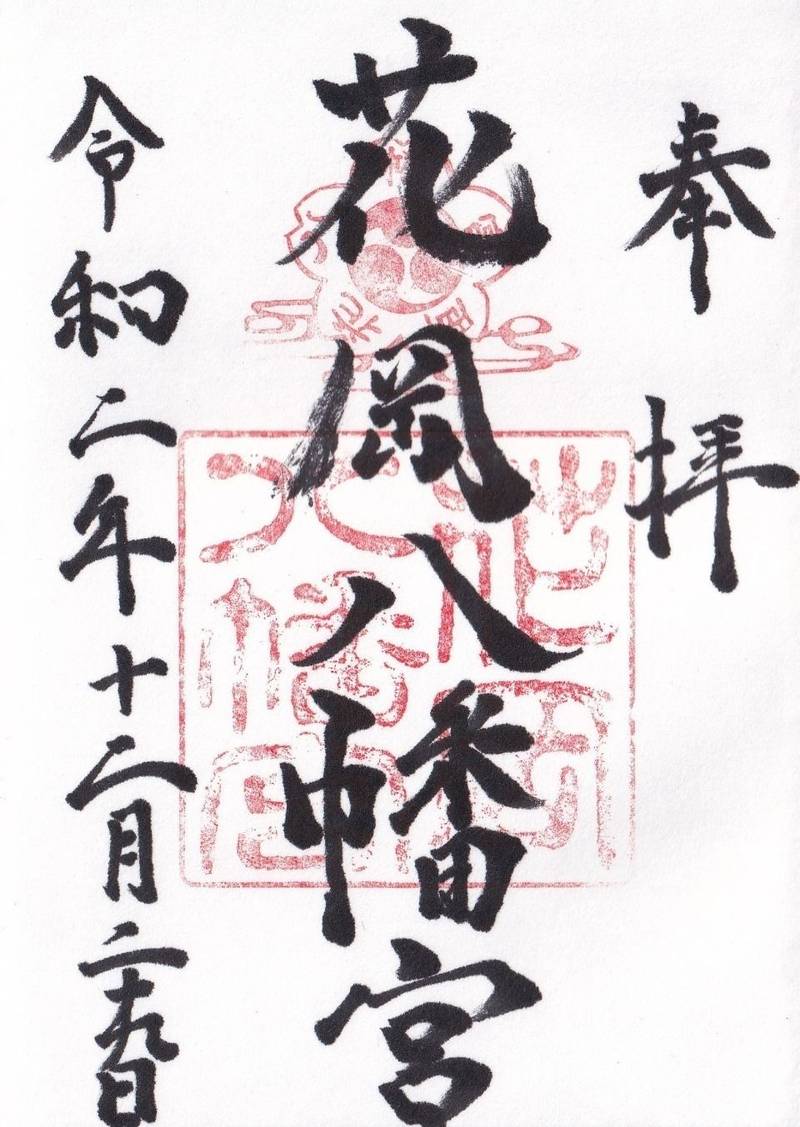 奉拝
花岡八幡宮
令和二年十二月二十九日
花岡八幡宮